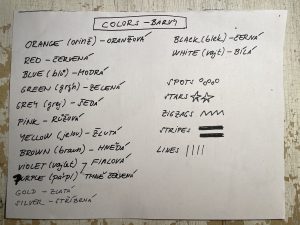 COLORS - BARVY
ORANGE (orinž) - ORANŽOVÁ
RED - ČERVENÁ
BLUE (blů) - MODRÁ
GREEN (grýn) - ZELENÁ
GREY (grey) - ŠEDÁ
PINK - RŮŽOVÁ
YELLOW (jelou) - ŽLUTÁ
BROWN (braun) - HNĚDÁ
VIOLET (vajlet) FIALOVÁ
PURPLE (pérpl) TMAVĚ ČERVENÁ
GOLD - ZLATÁ
SILVER - STŘÍBRNÁ
BLACK (blek) - ČERNÁ
WHITE (vajt) - BÍLÁ
SPOTS
STARS
ZIGZAGS
STRIPES
LINES